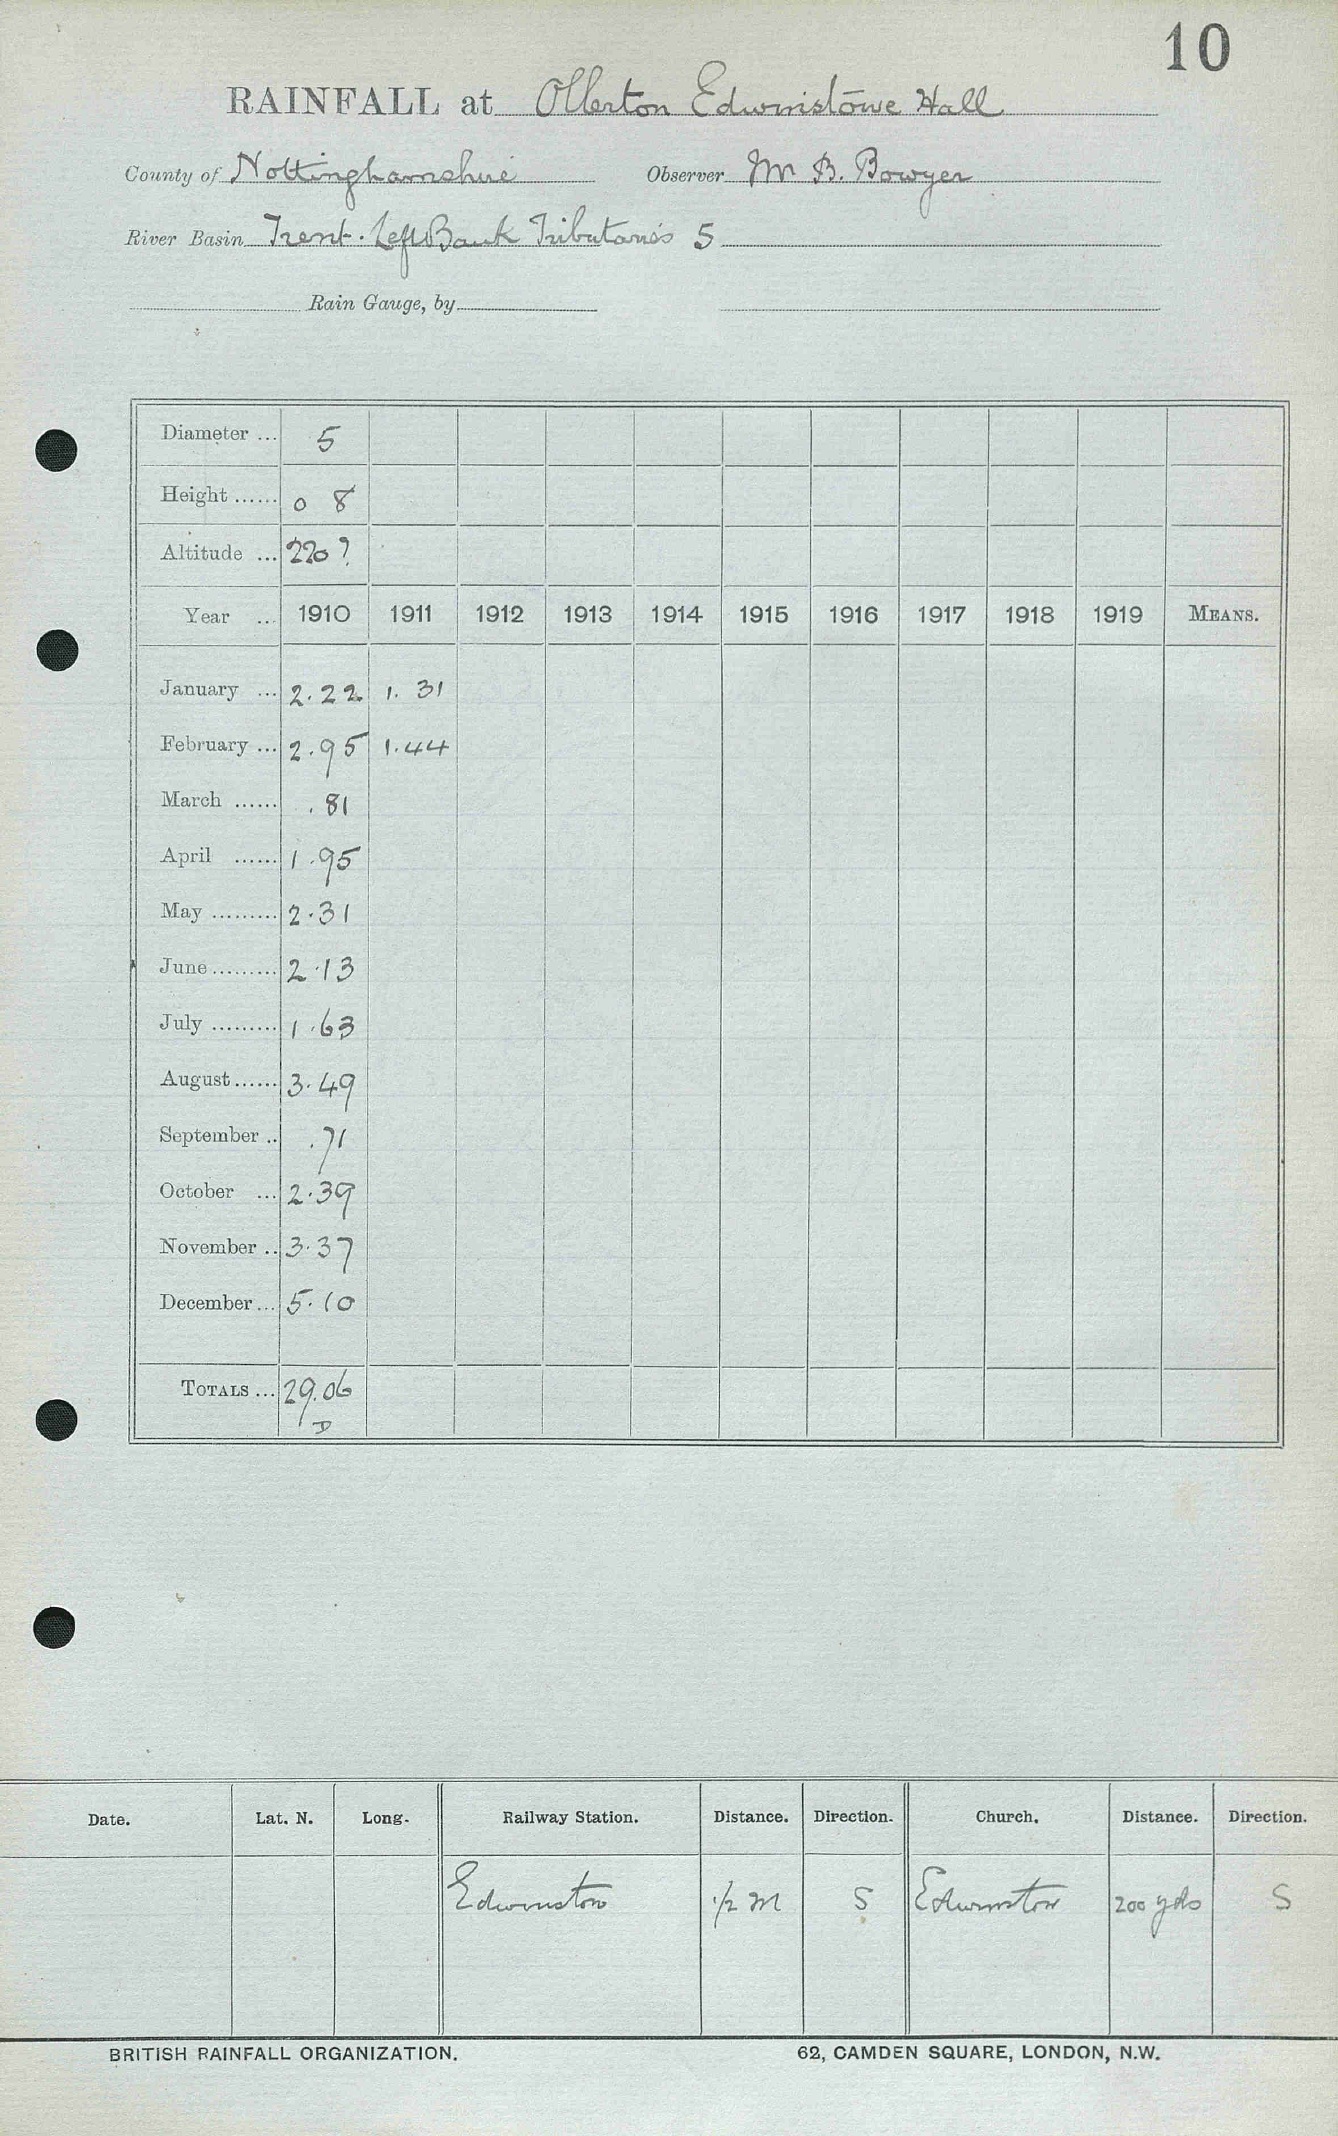 10
RAINFALL at Ollerton Edwinstowe Hall
County of Nottinghamshire Observer Mr B. Bowyer
River Basin Trent. Left Bank Tributaries 5
Rain Gauge, by
Diameter ... 5
Height ...... 0 8
Altitude ... 220 ?
Year ... 1910 1911 1912 1913 1914 1915 1916 1917 1918 1919 MEANS.
January ... 2.22 1.31
February ... 2.95 1.44
March ...... .81
April ...... 1.95
May ......... 2.31
June ......... 2.13
July ......... 1.63
August ...... 3.49
September .. .71
October ... 2.39
November .. 3.37
December ... 5.10
TOTALS ... 29.06
D
Date. Lat. N. Long. Railway Station. Distance. Direction. Church. Distance. Direction.
Edwinstow 1/2 M S Edwinstow 200 yds S
BRITISH RAINFALL ORGANIZATION. 62, CAMDEN SQUARE, LONDON, N.W.